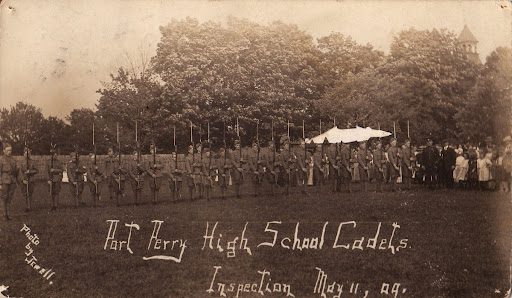 Port Perry High School Cadets.
Inspection May 11, 09.
Photo
by Jewell.